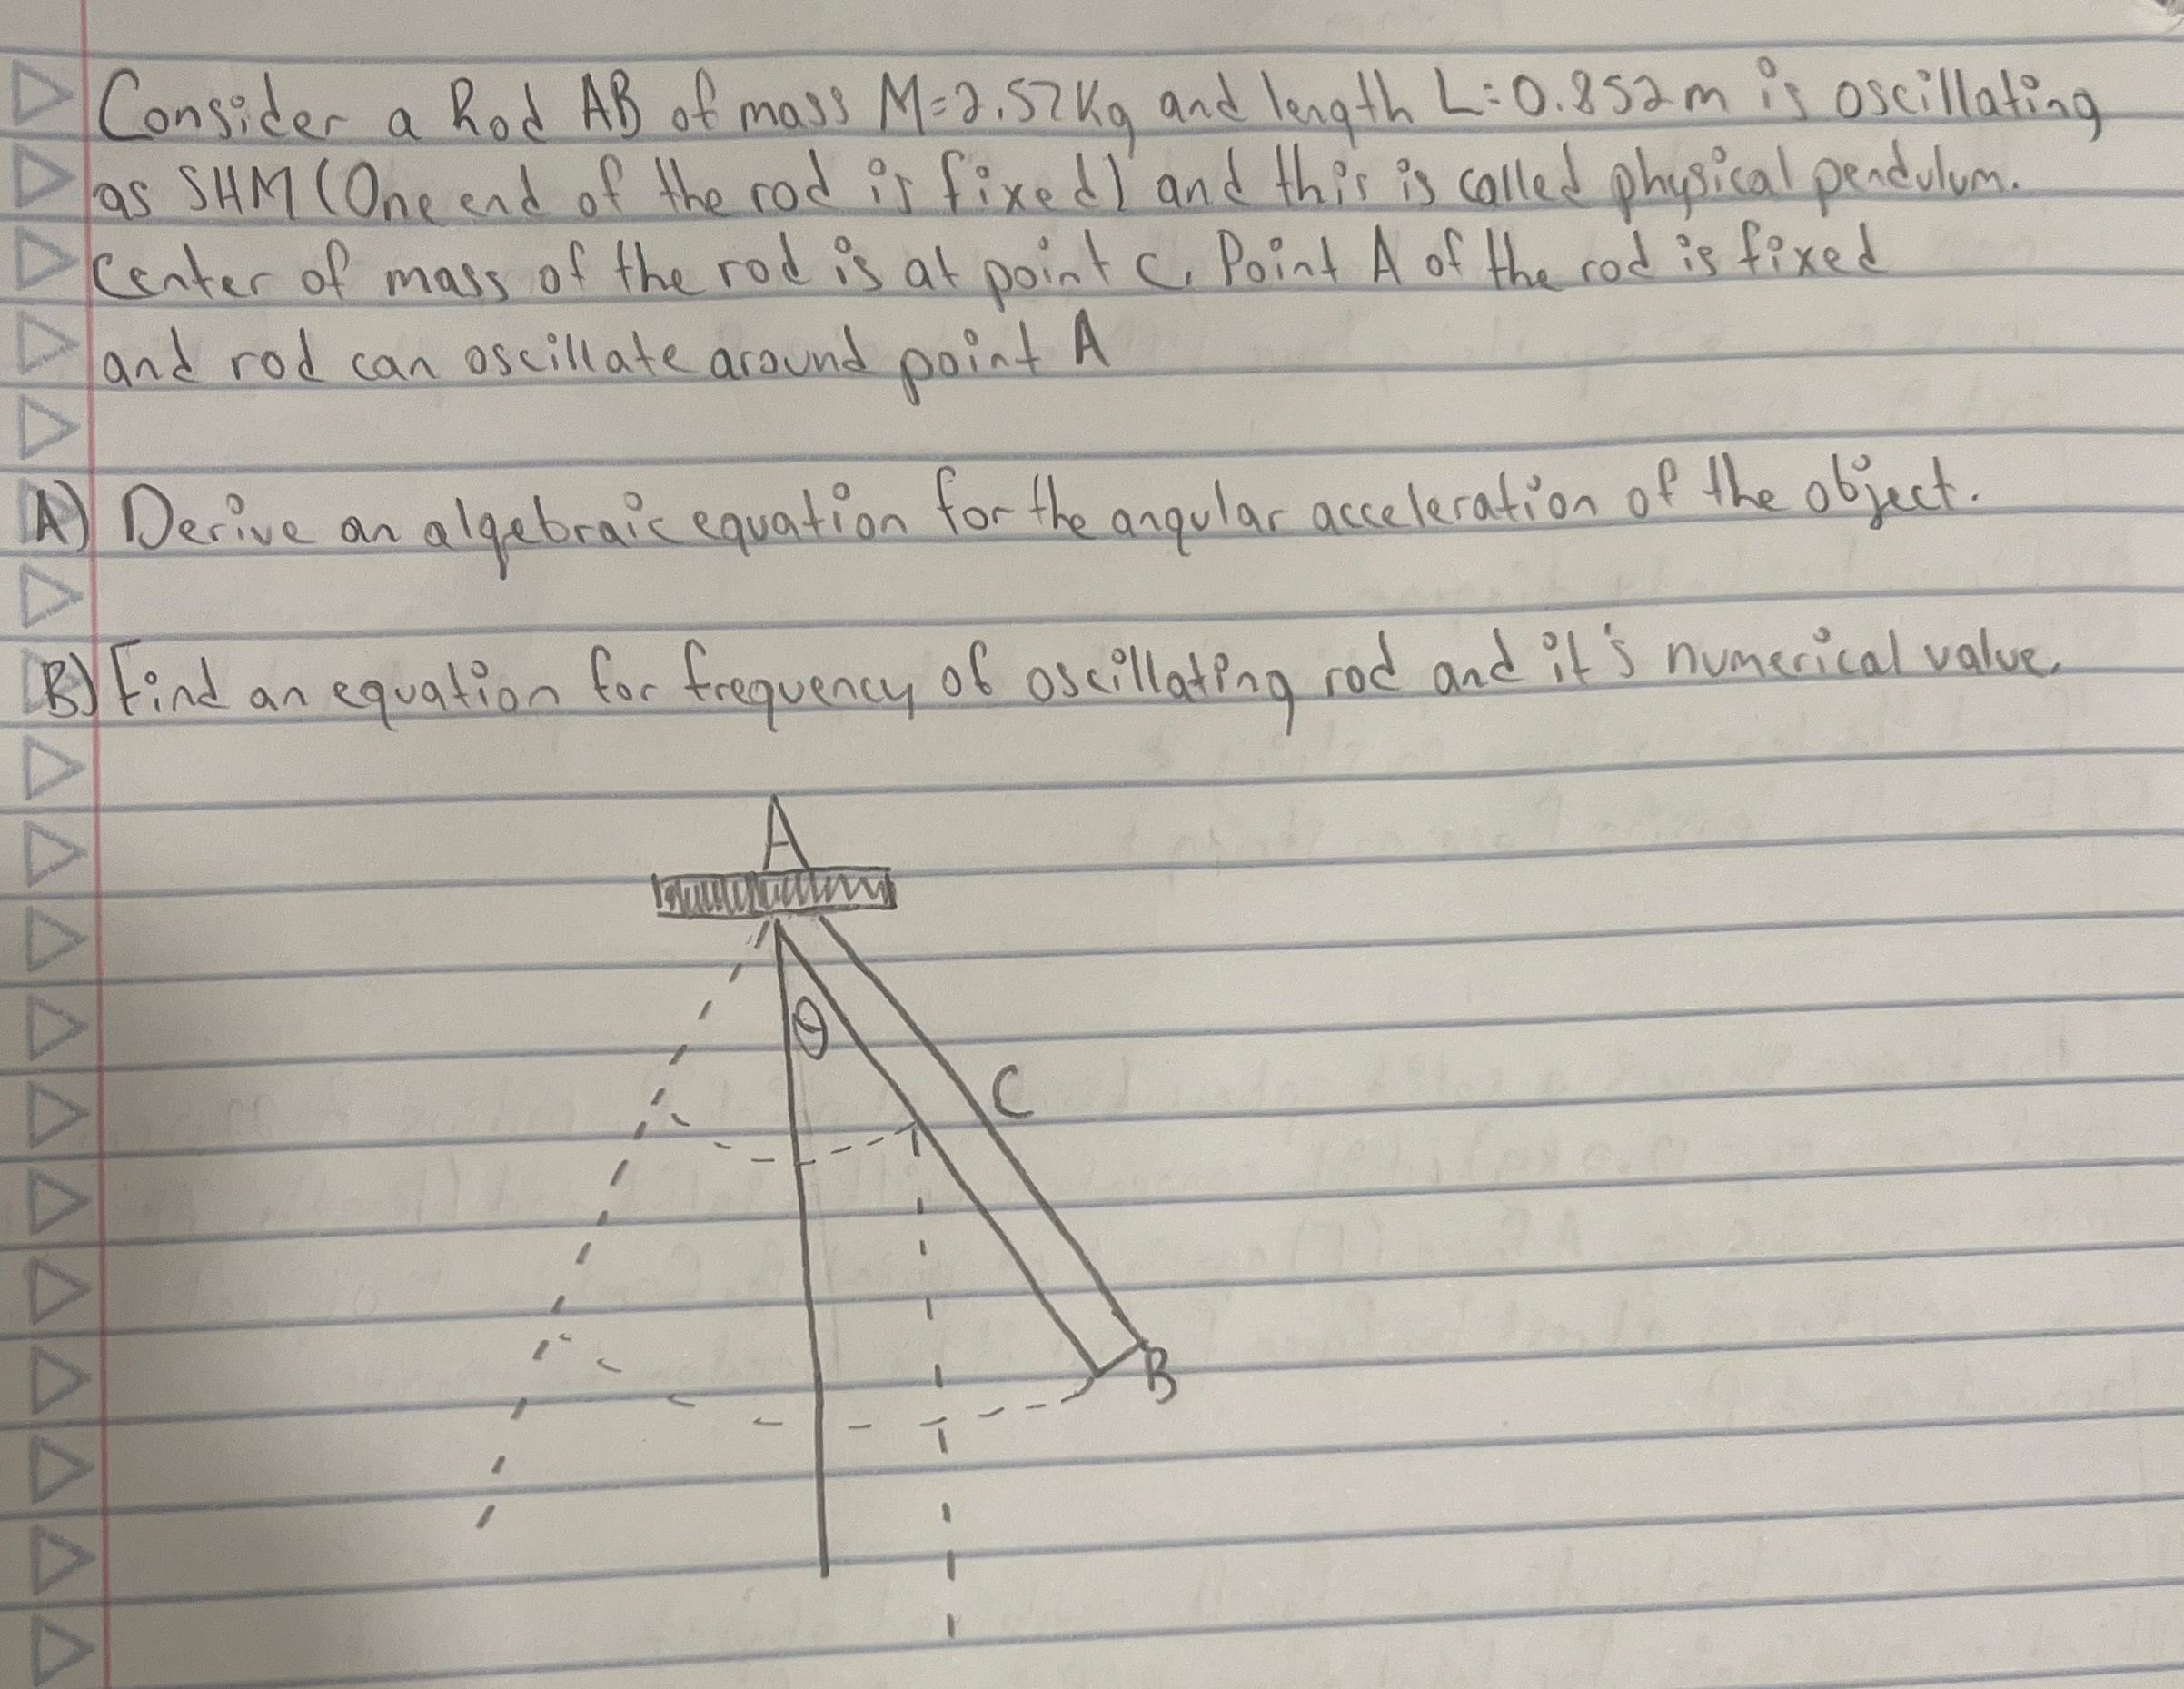 Consider a Rod AB of mass M=2.57Kg and length L=0.852m is oscillating
as SHM (One end of the rod is fixed) and this is called physical pendulum.
Center of mass of the rod is at point C. Point A of the rod is fixed
and rod can oscillate around point A
A) Derive an algebraic equation for the angular acceleration of the object.
B) Find an equation for frequency of oscillating rod and it's numerical value.
A
θ
C
B